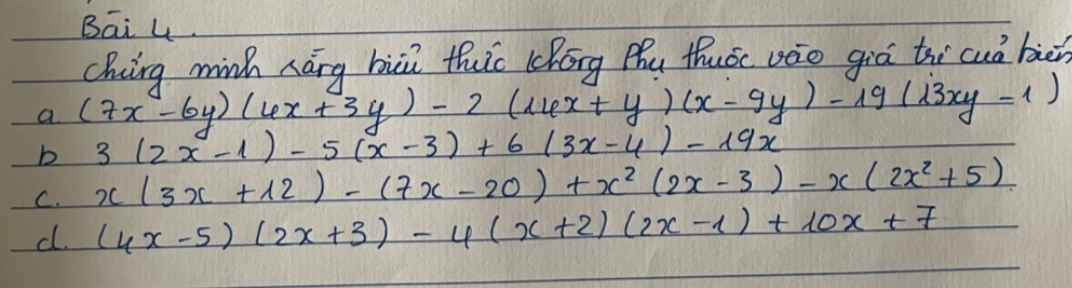 Bài 4.
Chứng minh rằng biểu thức không phụ thuộc vào giá trị của biến
a (7x - 6y)(4x + 3y) - 2 (14x + y)(x - 9y) - 19 (13xy - 1)
b 3 (2x - 1) - 5(x - 3) + 6 (3x - 4) - 19x
c. x(3x + 12) - (7x - 20) + x² (2x - 3) - x(2x² + 5).
d. (4x - 5)(2x + 3) - 4(x + 2)(2x - 1) + 10x + 7